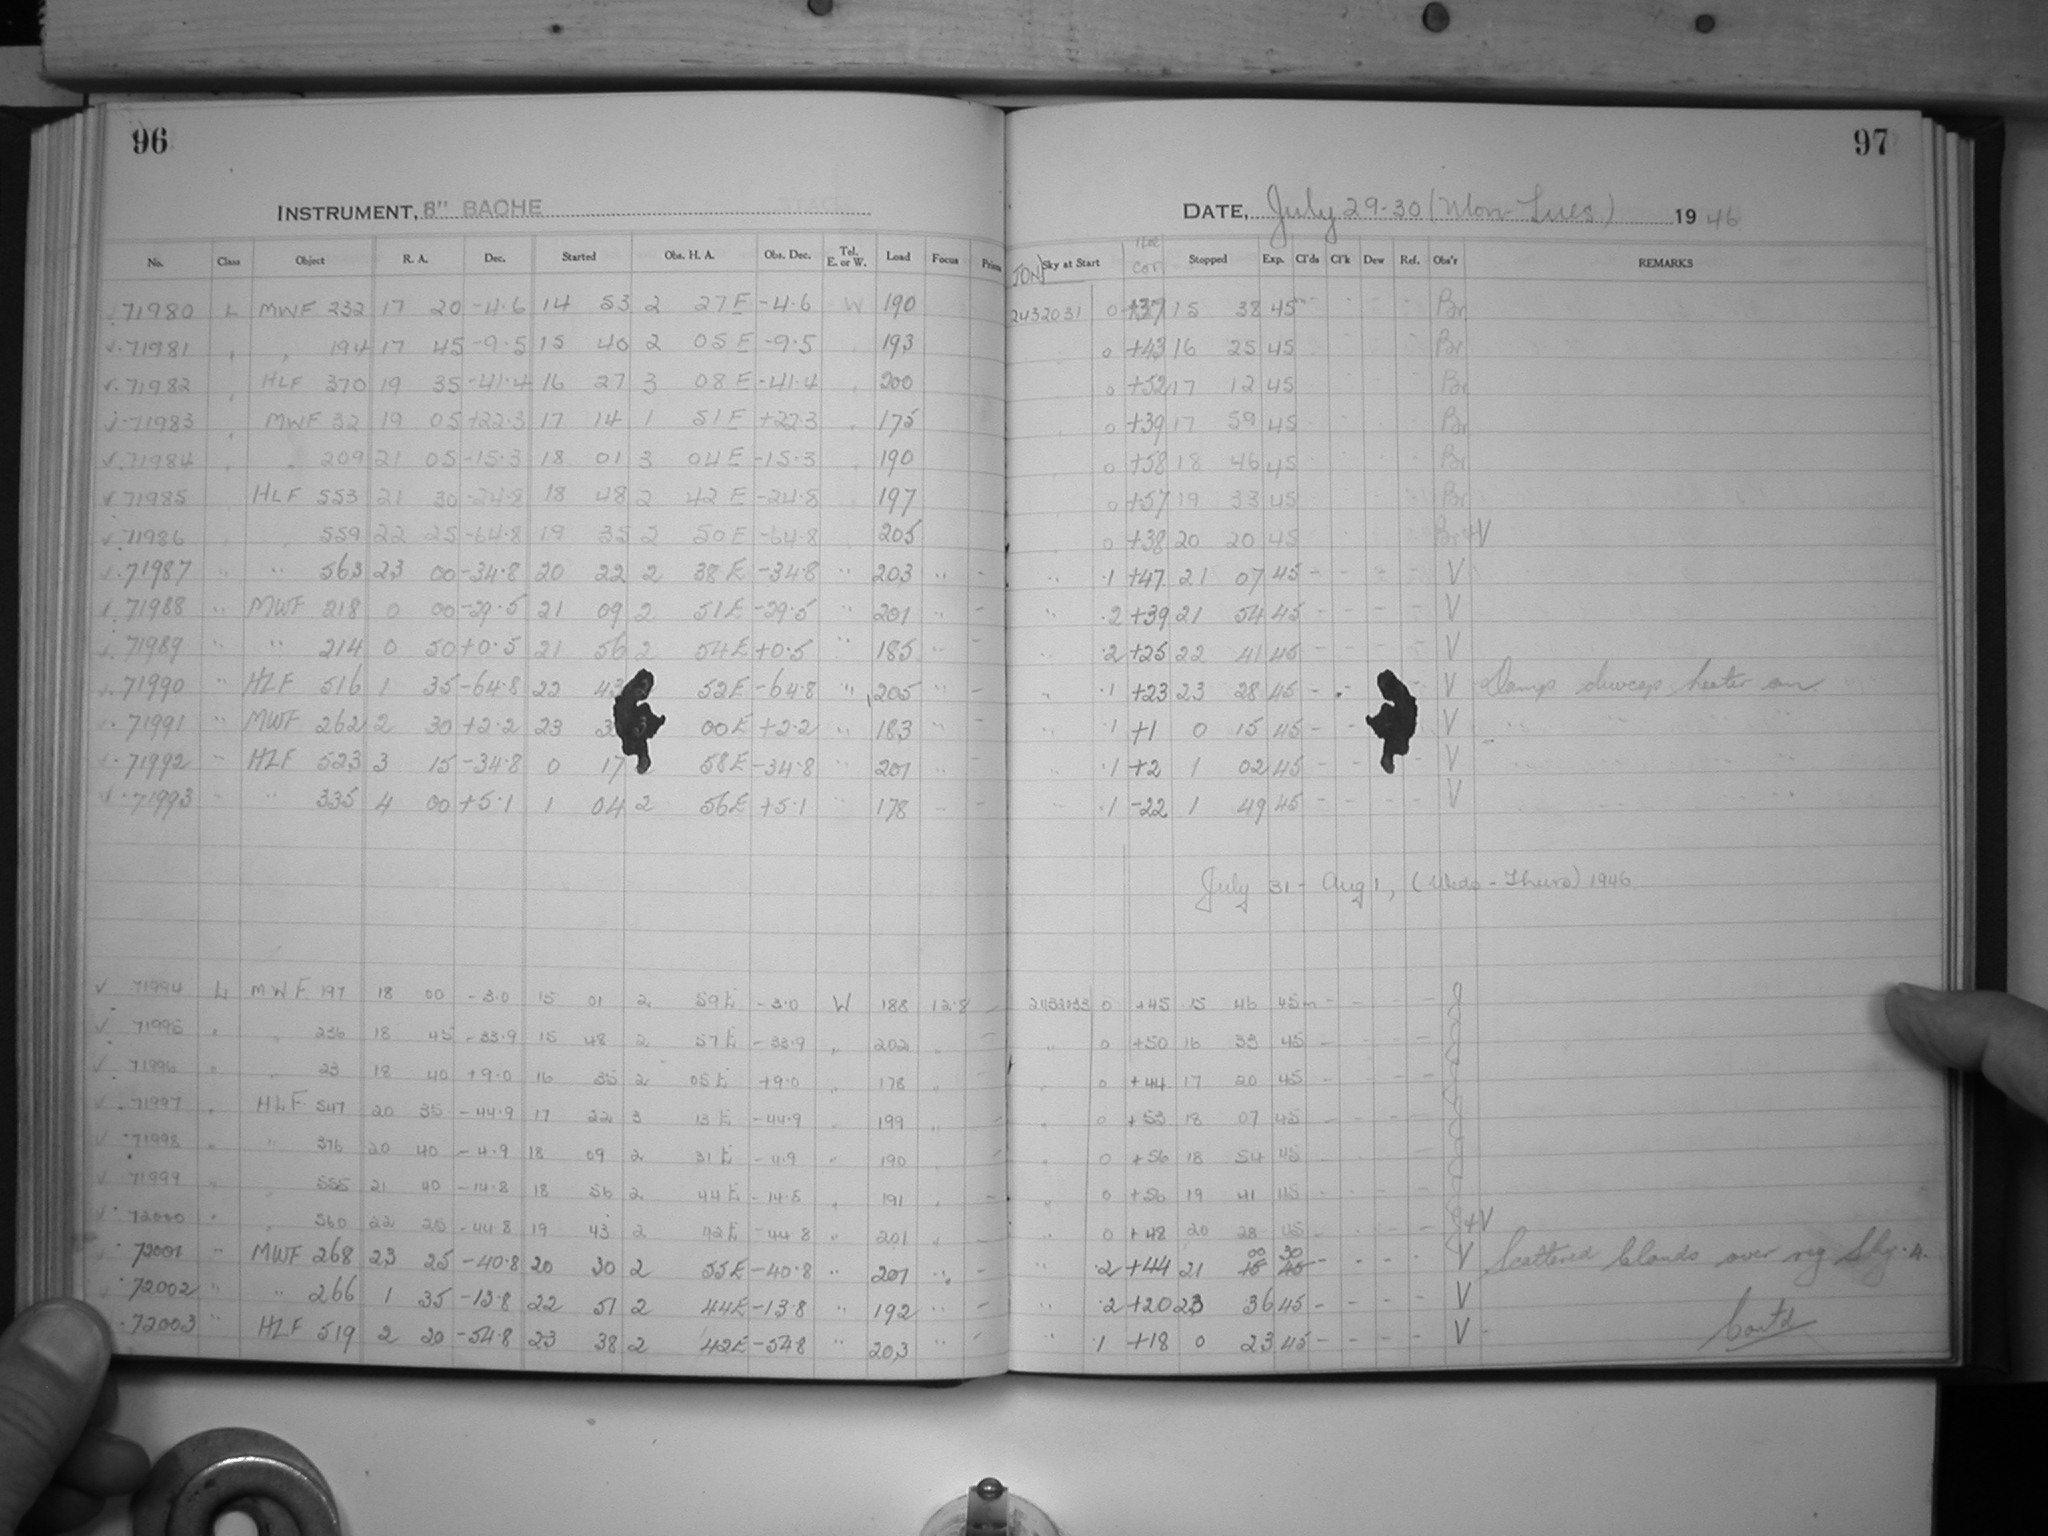 96
97
INSTRUMENT, 8" BACHE
DATE, July 29-30 (Mon-Tues) 1946
No. Class Object R. A. Dec. Started Obs. H. A. Obs. Dec. Tel. E. or W. Load Focus Prism JDN Sky at Start cor Stopped Exp. Cl'ds Cl'k Dew Ref. Obs'r REMARKS
✓ 71980 L MWF 232 17 20 -4.6 14 53 2 27E -4.6 W 190 2432031 0 +37 15 38 45m Br
✓ 71981 " " 194 17 45 -9.5 15 40 2 05E -9.5 193 0 +43 16 25 45 Br
✓ 71982 " HLF 370 19 35 -41.4 16 27 3 08E -41.4 " 200 0 +52 17 12 45 Br
✓ 71983 " MWF 32 19 05 +22.3 17 14 1 51E +22.3 " 175 0 +39 17 59 45 Br
✓ 71984 " " 209 21 05 -15.3 18 01 3 04E -15.3 " 190 0 +58 18 46 45 Br
✓ 71985 " HLF 553 21 30 -24.8 18 48 2 42E -24.8 197 0 +57 19 33 45 Br
✓ 71986 " " 559 22 25 -64.8 19 35 2 50E -64.8 205 0 +38 20 20 45 Br+V
✓ 71987 " " 563 23 00 -34.8 20 22 2 38E -34.8 " 203 " - " .1 +47 21 07 45 - - - - V
✓ 71988 " MWF 218 0 00 -29.5 21 09 2 51E -29.5 " 201 " - " .2 +39 21 54 45 - - - - V
✓ 71989 " " 214 0 50 +0.5 21 56 2 54E +0.5 " 185 " - " .2 +25 22 41 45 - - - - V
✓ 71990 " HLF 516 1 35 -64.8 22 43 52E -64.8 " 205 " - " .1 +23 23 28 45 - - - V Damp dewcap heater on.
✓ 71991 " MWF 262 2 30 +2.2 23 3 00E +2.2 " 183 " - " .1 +1 0 15 45 - - - V " " " "
✓ 71992 " HLF 523 3 15 -34.8 0 17 58E -34.8 " 201 " - " .1 +2 1 02 45 - - - V " " " "
✓ 71993 " " 335 4 00 +5.1 1 04 2 56E +5.1 " 178 " - " .1 -22 1 49 45 - - - - V " " " "
July 31 - Aug 1, (Weds - Thurs) 1946
✓ 71994 L MWF 197 18 00 -3.0 15 01 2 59E -3.0 W 188 12.8 - 2432033 0 +45 15 46 45m - - - - J
✓ 71995 " " 236 18 45 -33.9 15 48 2 57E -33.9 " 202 " - " 0 +50 16 33 45 - - - - J
✓ 71996 " " 23 18 40 +9.0 16 35 2 05E +9.0 " 178 " - " 0 +44 17 20 45 - - - - J
✓ 71997 " HLF 547 20 35 -44.9 17 22 3 13E -44.9 " 199 " - " 0 +53 18 07 45 - - - - J
✓ 71998 " " 376 20 40 -4.9 18 09 2 31E -4.9 " 190 " - " 0 +56 18 54 45 - - - - J
✓ 71999 " " 555 21 40 -14.8 18 56 2 44E -14.8 " 191 " - " 0 +56 19 41 45 - - - - J
✓ 72000 " " 560 22 25 -44.8 19 43 2 42E -44.8 " 201 " - " 0 +48 20 28 45 - - - - J+V
✓ 72001 " MWF 268 23 25 -40.8 20 30 2 55E -40.8 " 201 " - " .2 +44 21 00 30 - - - - V Scattered Clouds over reg Sky .4.
✓ 72002 " " 266 1 35 -13.8 22 51 2 44E -13.8 " 192 " - " .2 +20 23 36 45 - - - - V
72003 " HLF 519 2 20 -54.8 23 38 2 42E -54.8 " 203 " - " .1 +18 0 23 45 - - - - V -
Contd